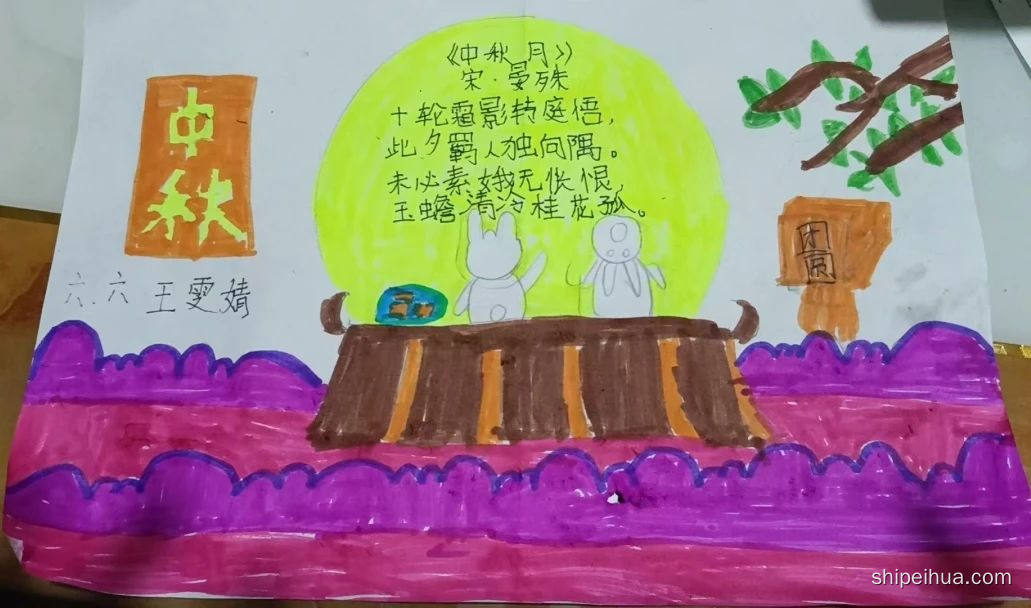 《中秋月》
宋·晏殊
十轮霜影转庭梧，
此夕羁人独向隅。
未必素娥无怅恨，
玉蟾清冷桂花孤。
中秋
六.六 王雯婧
团
shipeihua.com